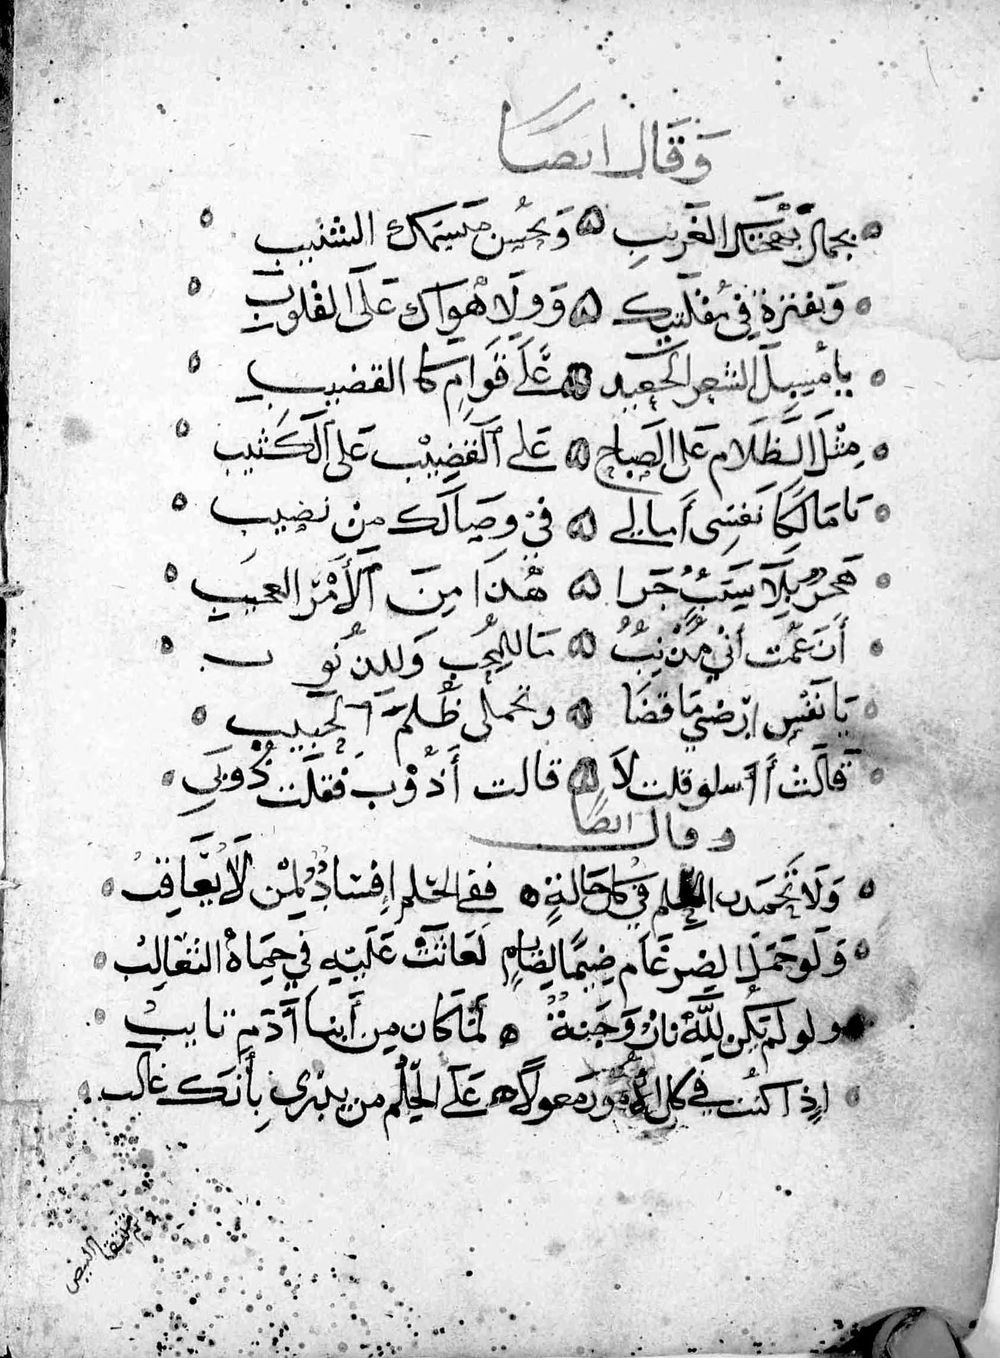 وقال ايضا
بجمال بهجتك الغريب ۞ وبحسن مبسمك الشنيب
وبفترة في مقلتيك ۞ وولا هواك على القلوب
يا مسبل الشعر الجعيد ۞ على قوام كا القضيب
مثل الظلام على الصباح ۞ على القضيب على الكثيب
يا مالكا نفسي أمالي ۞ في وصالك من نصيب
هجر بلا سبب جرا ۞ هذا من الأمر العجيب
أن عمت أني مذنب ۞ ما للمحب وللذنوب
يا نفس ارضي ما قضا ۞ وتحملي ظلم الحبيب
قالت أأسلو قلت لا ۞ قالت أذوب فقلت ذوبي
وقال ايضا
ولا تحمدن الحلم في كل حالة ه ففي الحلم إفساد لمن لا يعاقب
ولو حمل الضرغام ضيما لضايم لعاثت عليه في حماه الثعالب
ولو لم يكن لله نار وجنة ه لما كان من أبنا آدم تايب
اذا كنت في كل الأمور معولا ه على الحلم من يدري بأنك غالب